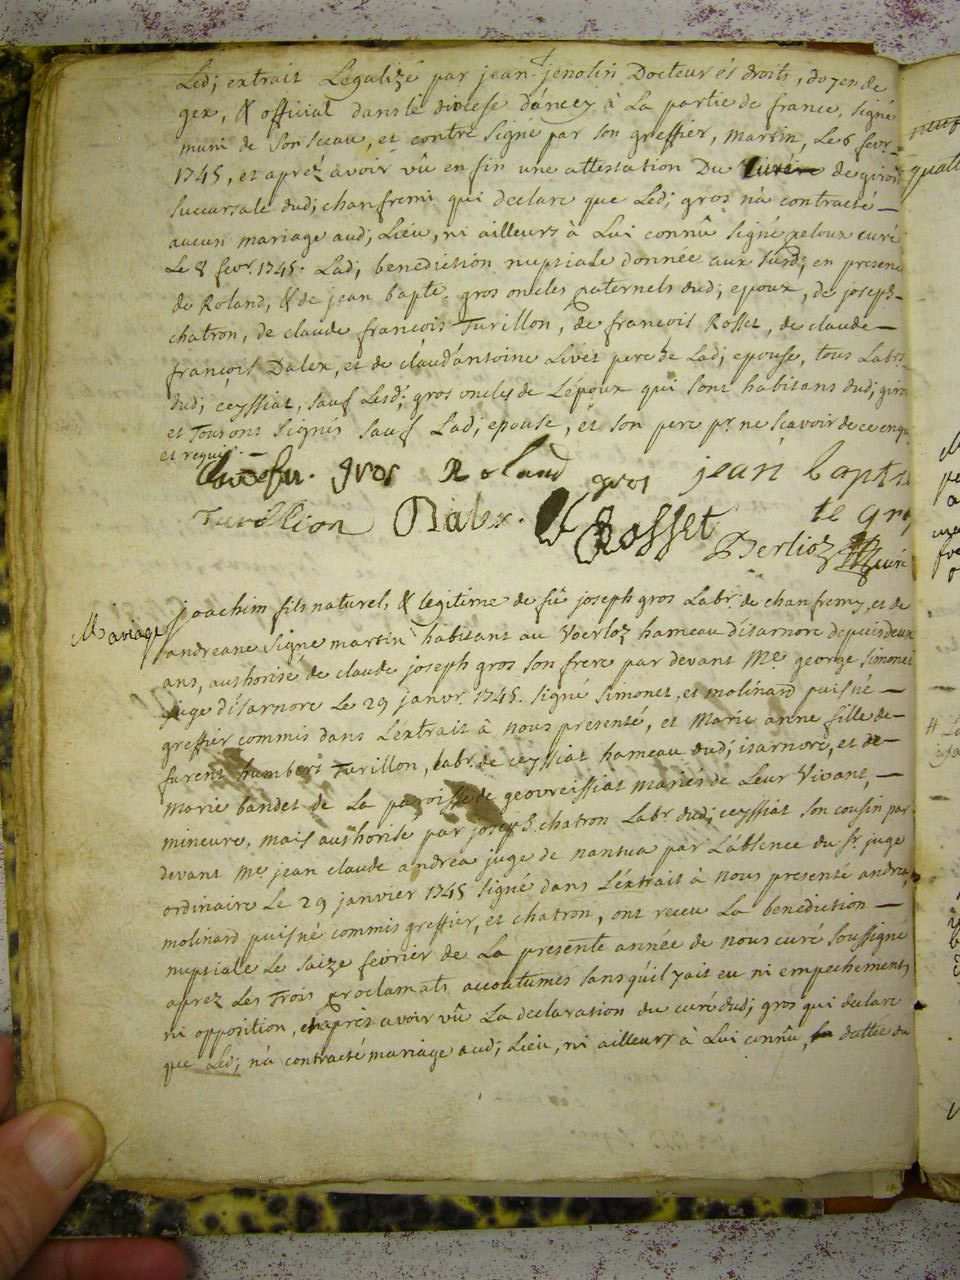 Led; extrait Legalizé par jean. jenolin Docteur és droits, doyen de
gex, & official dans le diocese d'ancey à La partie de france, signé
muni de son sceau, et contre signé par son greffier, martin, Le 6 fevr.
1745, et aprez avoir vû en fin une attestation Du de giron
succursale dud; chanfremi qui declare que Led; gros n'a contracté —
aucun mariage aud; Lieu, ni ailleurs à Lui connû signé curé
Le 8 fevr. 1745. Lad; benediction nuptiale donnée aux susd; en presence
de Roland, & de jean bapte. gros oncles paternels dud; epoux, de joseph-
chatron, de claude françois Turillon, de françois Rosset, de claude —
françois Dalex, et de claud'antoine Livet pere de Lad; epouse, tous Labrs.
dud; ceyssiat, sauf Lesd; gros oncles de L'époux qui sont habitans dud; giron
et Tous ont signés sauf Lad; epouse, et son pere pr. ne sçavoir de ce enquis
et requis. —
gros Roland gros jean baptis
Turillion Dalex. Rosset te gros
Berlioz curé
Mariage
joachim fils naturel, & legitime de fû joseph gros Labr. de chanfremy, et de
andreane signe martin habitant au Voerloz hameau d'isarnore depuis deux
ans, authorisé de claude joseph gros son frere par devant Me. george simonet
juge d'isarnore Le 29 janvr. 1745. signé simonet, et molinard puisné —
greffier commis dans L'extrait à nous presenté, et Marie anne fille de —
furent humbert Turillon, Labr. de ceyssiat hameau dud; isarnore, et de —
Marie bandet de La paroisse de geovreissiat mariés de Leur Vivant, —
mineure, mais authorisé par joseph chatron Labr. dud; ceyssiat son cousin par
devant Me. jean claude andrea juge de nantua par L'absence du sr. juge
ordinaire Le 29 janvier 1745 signé dans L'extrait à nous presenté andrea,
molinard puisné commis greffier, et chatron, ont receu La benediction —
nuptiale Le saize fevrier de La presente année de nous curé soussigné
aprez Les trois proclamats accoutumés sans qu'il y ait eu ni empechement,
ni opposition, et aprés avoir vû La declaration du curé dud; gros qui declare
que Led; n'a contracté mariage aud; Lieu, ni ailleurs à Lui connû, dattée du